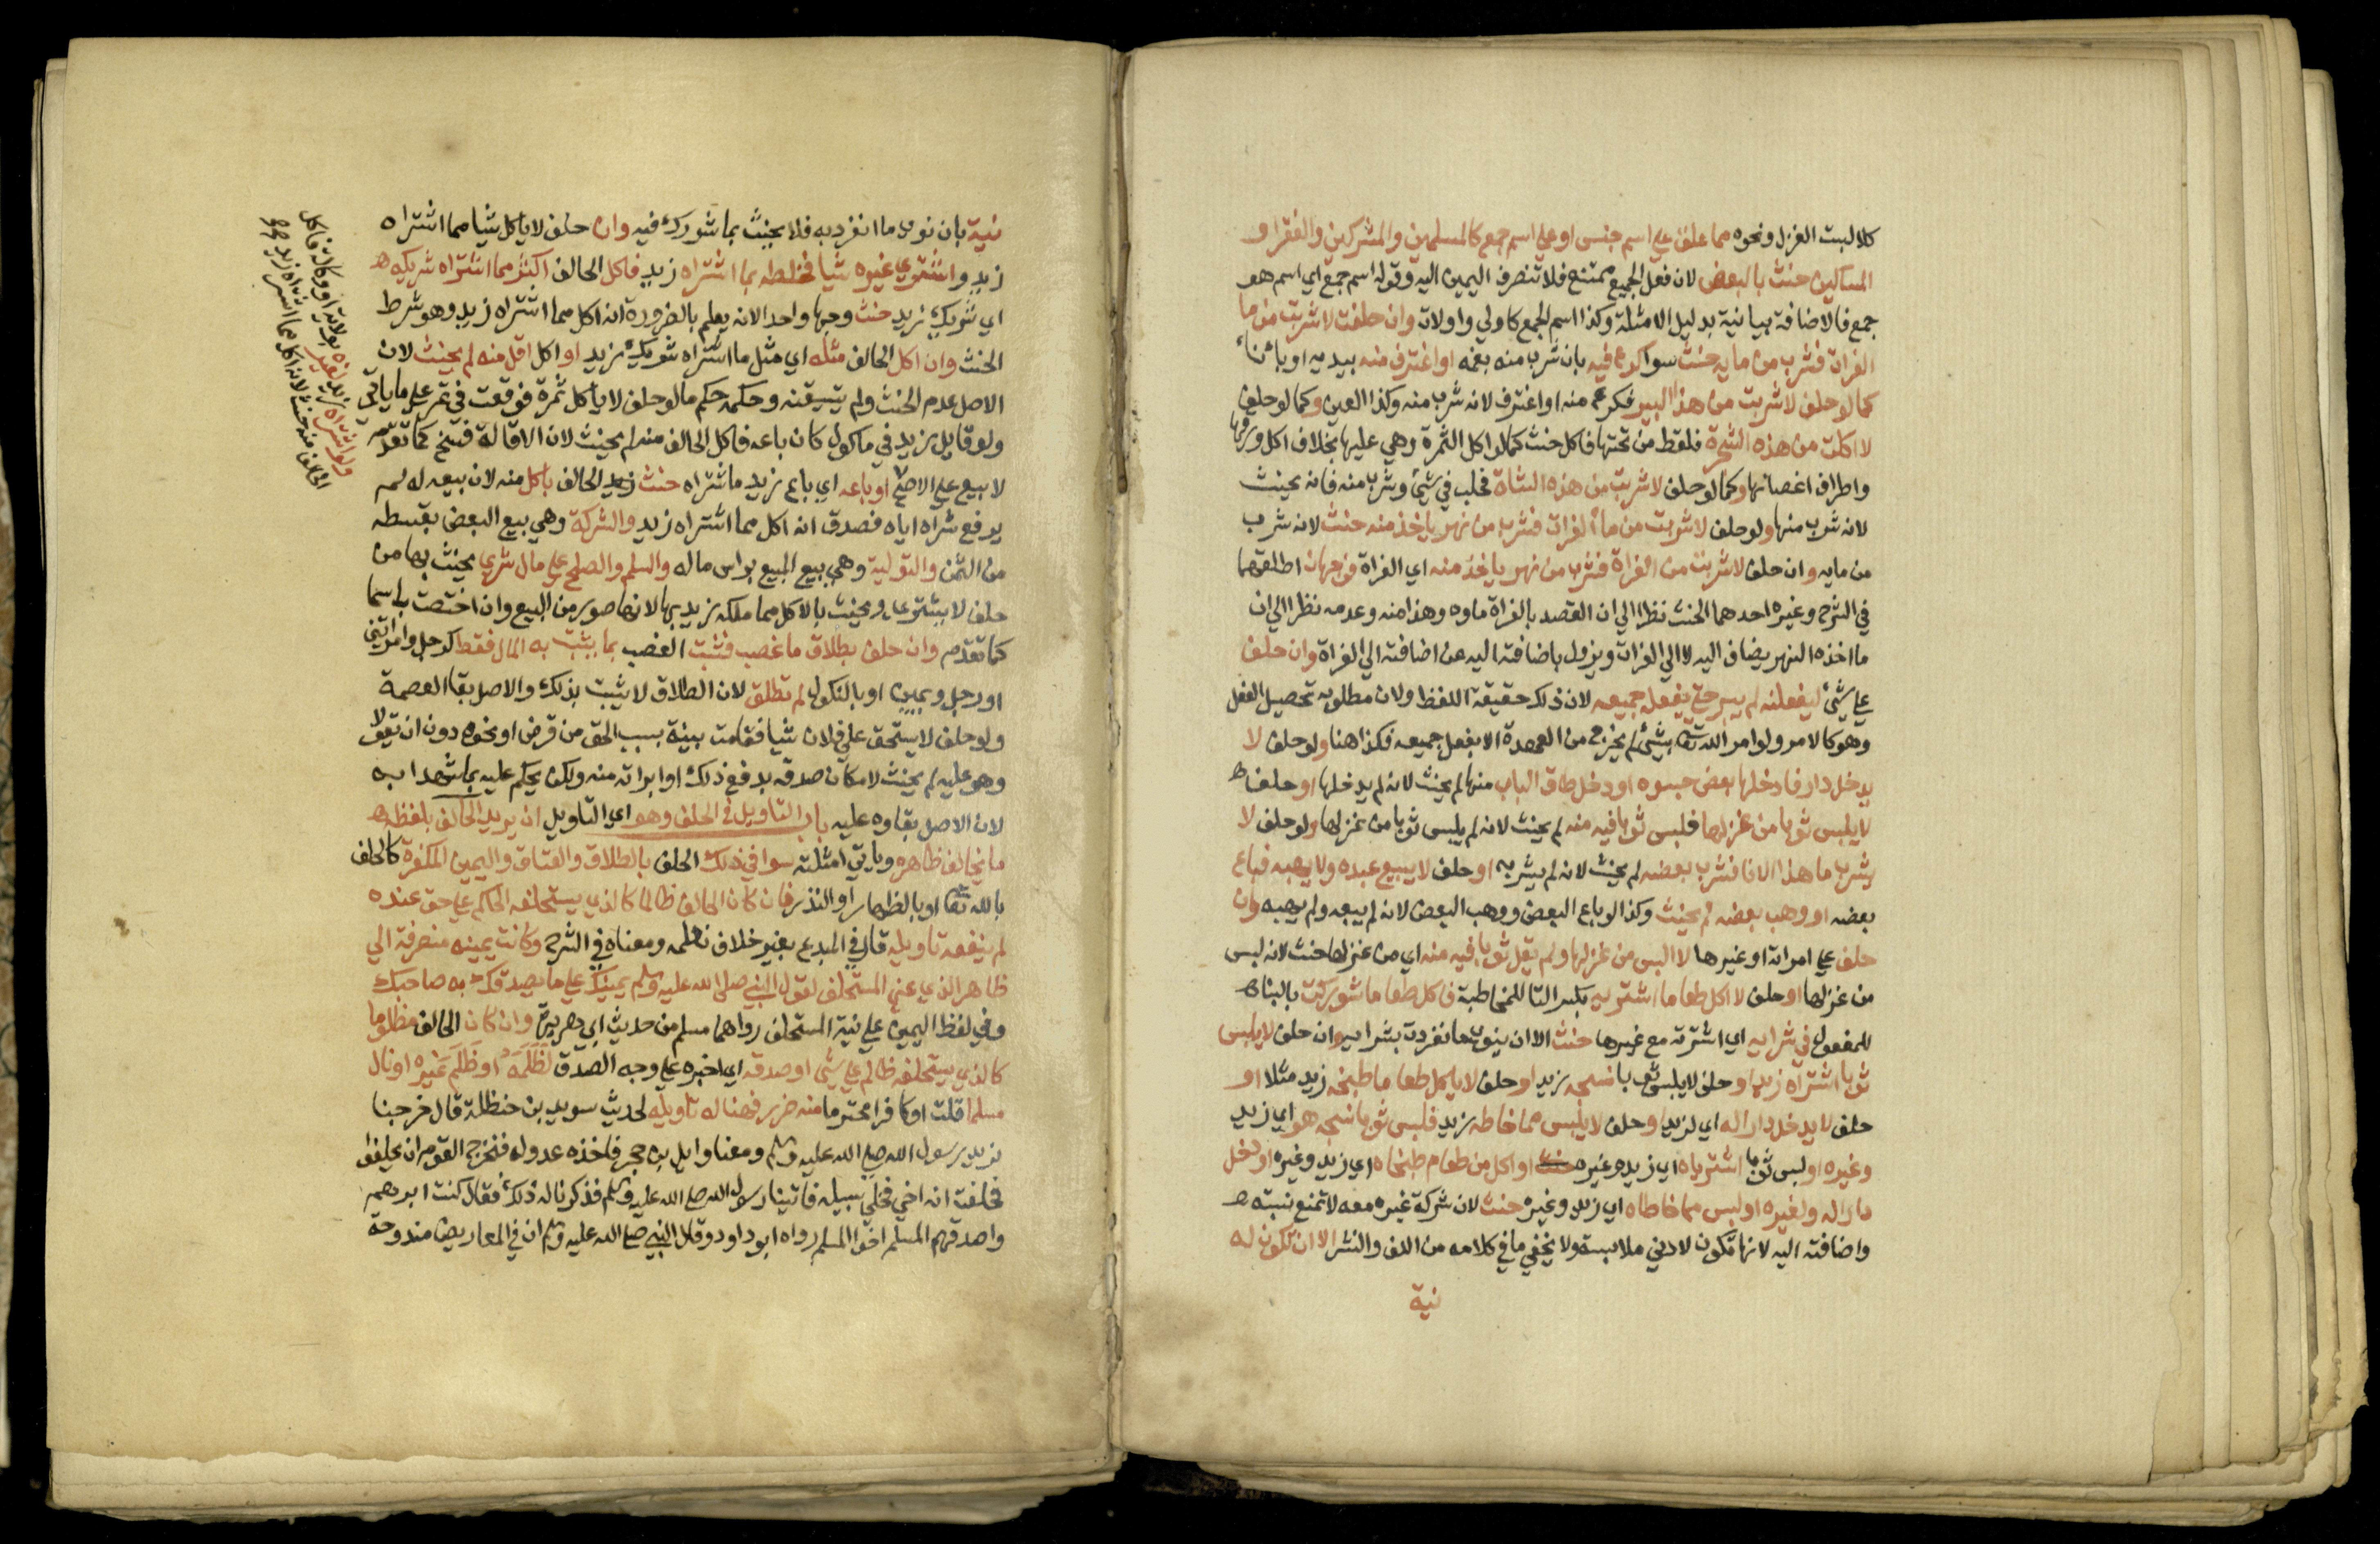 كلا لبست الغزل ونحوه مما علق علي اسم جنس او علي اسم جمع كالمسلمين والمشركين والفقرا و
المساكين حنث بالبعض لان فعل الجميع ممتنع فلا تنصرف اليمين اليه وقوله اسم جمع اي اسم هو
جمع فالاضافة بيانية بدليل الامثلة وكذا اسم الجمع كاولي واولات وان حلف لا شربت من ما
الفرات فشرب من مايه حنث سوا كرع فيه بان شرب منه بفمه او اغترف منه بيديه او باناء
كما لو حلف لا شربت من هذا البير فكرع منه او اغترف لانه شرب منه وكذا العين وكما لو حلف
لا اكلت من هذه الشجرة فلقط من تحتها فاكل حنث كما لو اكل الثمرة وهي عليها بخلاف اكل ورقها
واطراف اغصانها وكما لو حلف لا شربت من هذه الشاة فحلب في شيء وشرب منه فانه يحنث
لانه شرب منها ولو حلف لا شربت من ماء الفرات فشرب من نهر ياخذ منه حنث لانه شرب
من مايه وان حلف لا شربت من الفراة فشرب من نهر ياخذ منه اي الفراة فوجهان اطلقهما
في الشرح وغيره احدهما الحنث نظرا الي ان القصد بالفراة ماوه وهذا منه وعدمه نظرا الي ان
ما اخذه النهر يضاف اليه لا الي الفرات ويزول باضافته اليه عن اضافته الي الفراة وان حلف
علي شيء ليفعلنه لم يبر حتي يفعل جميعه لان ذلك حقيقة اللفظ ولان مطلوبه تحصيل الفعل
وهو كالامر ولو امر الله تعالى بشيء لم يخرج من العهدة الا بفعل جميعه فكذا هنا ولو حلف لا
يدخل دار فادخلها بعض جسده او دخل طاق الباب منها لم يحنث لانه لم يدخلها او حلف
لا يلبس ثوبا من غزلها فلبس ثوبا فيه منه لم يحنث لانه لم يلبس ثوبا من غزلها ولو حلف لا
يشرب ما هذا الانا فشرب بعضه لم يحنث لانه لم يشربه او حلف لا يبيع عبده ولا يهبه فباع
بعضه او وهب بعضه لم يحنث وكذا لو باع البعض ووهب البعض لانه لم يبعه ولم يهبه وان
حلف علي امراته او غيرها لا البس من غزلها ولم يقل ثوبا فيه منه اي من غزلها حنث لانه لبس
من غزلها او حلف لا اكل طعاما اشتريه بكسر التا للمخاطبة فاكل طعاما شوركت بالبنا
للمفعول في شرايه اي اشترته مع غيرها حنث الا ان ينوي ما انفردت بشرايه وان حلف لا يلبس
ثوبا اشتراه زيد او حلف لا يلبس ثوبا نسجه زيد او حلف لا ياكل طعاما طبخه زيد مثلا او
حلف لا يدخل دارا له اي لزيد او حلف لا يلبس مما خاطه زيد فلبس ثوبا نسجه هو اي زيد
وغيره او لبس ثوبا اشترياه اي زيد وغيره او اكل من طعام طبخاه اي زيد وغيره او دخل
دارا له ولغيره او لبس مما خاطاه اي زيد وغيره حنث لان شركة غيره معه لا تمنع نسبته
واضافته اليه لانها تكون لادني ملابسة ولا يخفي ما في كلامه من اللف والنشر الا ان تكون له
نية
نية بان نوي ما انفرد به فلا يحنث بما شورك فيه وان حلف لا ياكل شيا مما اشتراه
زيد واشتري غيره شيا فخلطه بما اشتراه زيد فاكل الحالف اكثر مما اشتراه شريكه
اي شريك زيد حنث وجها واحدا لانه يعلم بالضرورة انه اكل مما اشتراه زيد وهو شرط
الحنث وان اكل الحالف مثله اي مثل ما اشتراه شريك زيد او اكل اقل منه لم يحنث لان
الاصل عدم الحنث ولم يتيقنه وحكمه حكم ما لو حلف لا ياكل تمرة فوقعت في تمر علي ما ياتي
ولو قايل زيد في ماكول كان باعه فاكل الحالف منه لم يحنث لان الاقالة فسخ كما تقدم
لا بيع علي الاصح او باعه اي باع زيد ما شتراه حنث الحالف باكل منه لان بيعه له لم
يرفع شراه اياه فصدق انه اكل مما اشتراه زيد والشركة وهي بيع البعض بقسطه
من الثمن والتولية وهي بيع المبيع براس ماله والسلم والصلح علي مال شرا يحنث بها من
حلف لا يشتري ويحنث بالاكل مما ملكه زيد بها لانها صور من البيع وان اختصت باسما
كما تقدم وان حلف بطلاق ما غصب فثبت الغصب بما يثبت به المال فقط كرجل وامراتين
او رجل ويمين او بالنكول لم تطلق لان الطلاق لا يثبت بذلك والاصل بقا العصمة
ولو حلف لا يستحق علي فلان شيا فقامت بينة بسبب الحق من قرض او نحوه دون ان يقولا
وهو عليه لم يحنث لامكان صدقه بدفع ذلك او ابراته منه ولكن يحكم عليه بما شهدا به
لان الاصل بقاوه عليه باب التاويل في الحلف وهو اي التاويل ان يريد الحالف بلفظه
ما يخالف ظاهره وياتي امثلته سوا في ذلك الحلف بالطلاق والعتاق واليمين المكفرة كالحلف
بالله تعالى او بالظهار او النذر فان كان الحالف ظالما كالذي يستحلفه الحاكم علي حق عنده
لم ينفعه تاويله قال في المبدع بغير خلاف نعلمه ومعناه في الشرح وكانت يمينه منصرفة الي
ظاهر الذي عني المستحلف لقول النبي صلى الله عليه وسلم يمينك علي ما يصدقك به صاحبك
وفي لفظ اليمين علي نية المستحلف رواهما مسلم من حديث ابي هريرة وان كان الحالف مظلوما
كالذي يستحلفه ظالم علي شي او صدقه اي اخبره علي وجه الصدق لظلمه او ظلم غيره او نال
مسلما قلت او كافرا محترما منه ضرر فهنا له تاويله لحديث سويد بن حنظلة قال خرجنا
نريد رسول الله صلى الله عليه وسلم ومعنا وايل بن حجر فاخذه عدو له فتحرج القوم ان يحلفوا
فحلفت انه اخي فخلي سبيله فاتينا رسول الله صلى الله عليه وسلم فذكرنا له ذلك فقال كنت ابرهم
واصدقهم المسلم اخوا المسلم رواه ابو داود وقال النبي صلى الله عليه وسلم ان في المعاريض مندوحة
ولو اشتراه زيد لغيره بولاية او وكالة فاكل
الحالف منه حنث لانه اكل مما اشتراه زيد